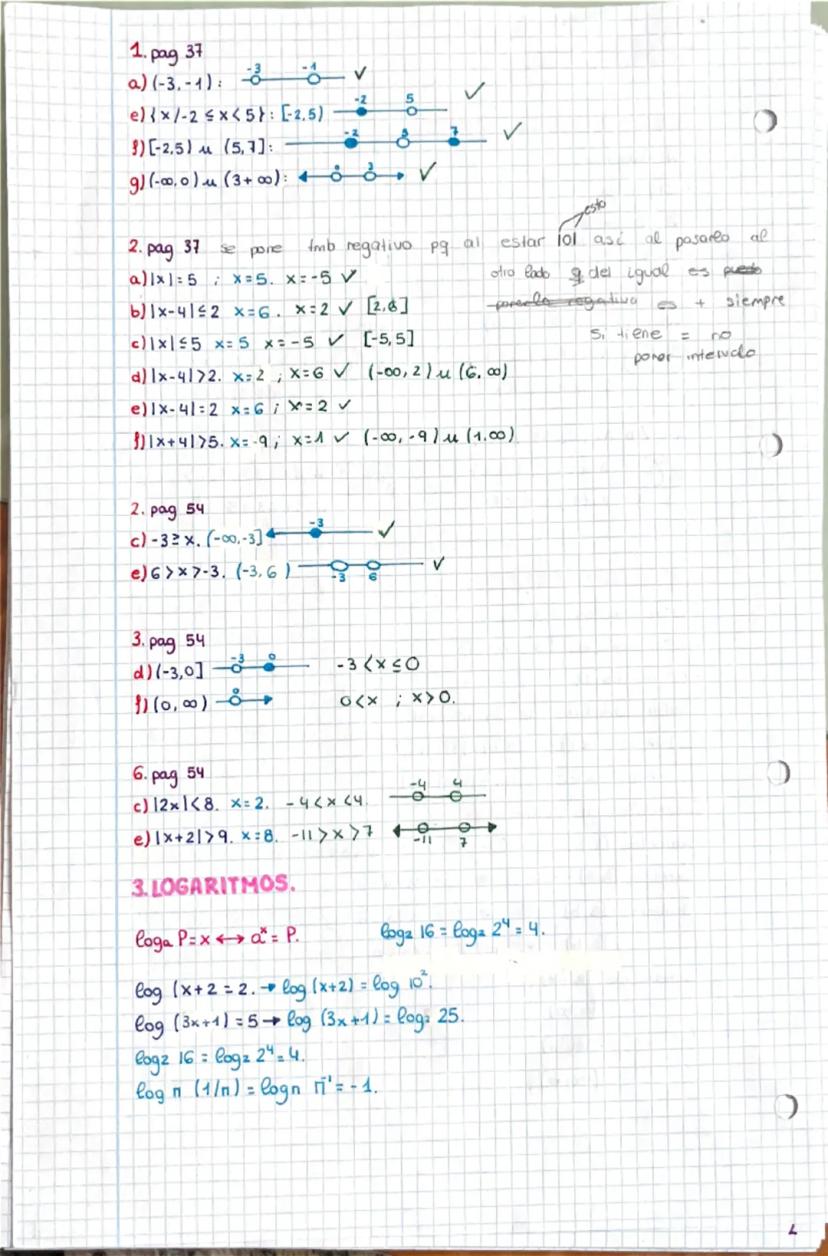 1. pag 37
a) (-3, -1): -3 -1 ✓
e) {x/-2 ≤ x < 5}: [-2,5) -2 5 ✓
f) [-2,5) u (5,7]: -2 5 7 ✓
g) (-∞,0) u (3+∞): 0 3 ✓
esto
2. pag 37 se pone tmb negativo pq al estar |0| así al pasarlo al
a) |x| = 5 ; x=5. x=-5 ✓ otro lado q del igual es puedo
b) |x-4| ≤ 2 x=6. x=2 ✓ [2,6] ponerlo negativo es + siempre
c) |x| ≤ 5 x=5 x=-5 ✓ [-5,5] Si tiene = no
d) |x-4| > 2. x=2 ; x=6 ✓ (-∞, 2) u (6, ∞) poner intervalo
e) |x-4| = 2 x=6 ; x=2 ✓
f) |x+4| > 5. x=-9 ; x=1 ✓ (-∞, -9) u (1,∞)
2. pag 54
c) -3 ≥ x. (-∞,-3] -3 ✓
e) 6 > x > -3. (-3,6) -3 6 ✓
3. pag 54
d) (-3,0] -3 0 -3 < x ≤ 0
f) (0, ∞) 0 0 < x ; x > 0.
6. pag 54
c) |2x| < 8. x=2. -4 < x < 4. -4 4
e) |x+2| > 9. x=8. -11 > x > 7 -11 7
3. LOGARITMOS.
logₐ P=x ↔ aˣ = P. log₂ 16 = log₂ 2⁴ = 4.
log (x+2 = 2. → log (x+2) = log 10².
log (3x+1) = 5 → log (3x+1) = log₂ 25.
log₂ 16 = log₂ 2⁴ = 4.
log n (1/n) = log n n⁻¹ = -1.